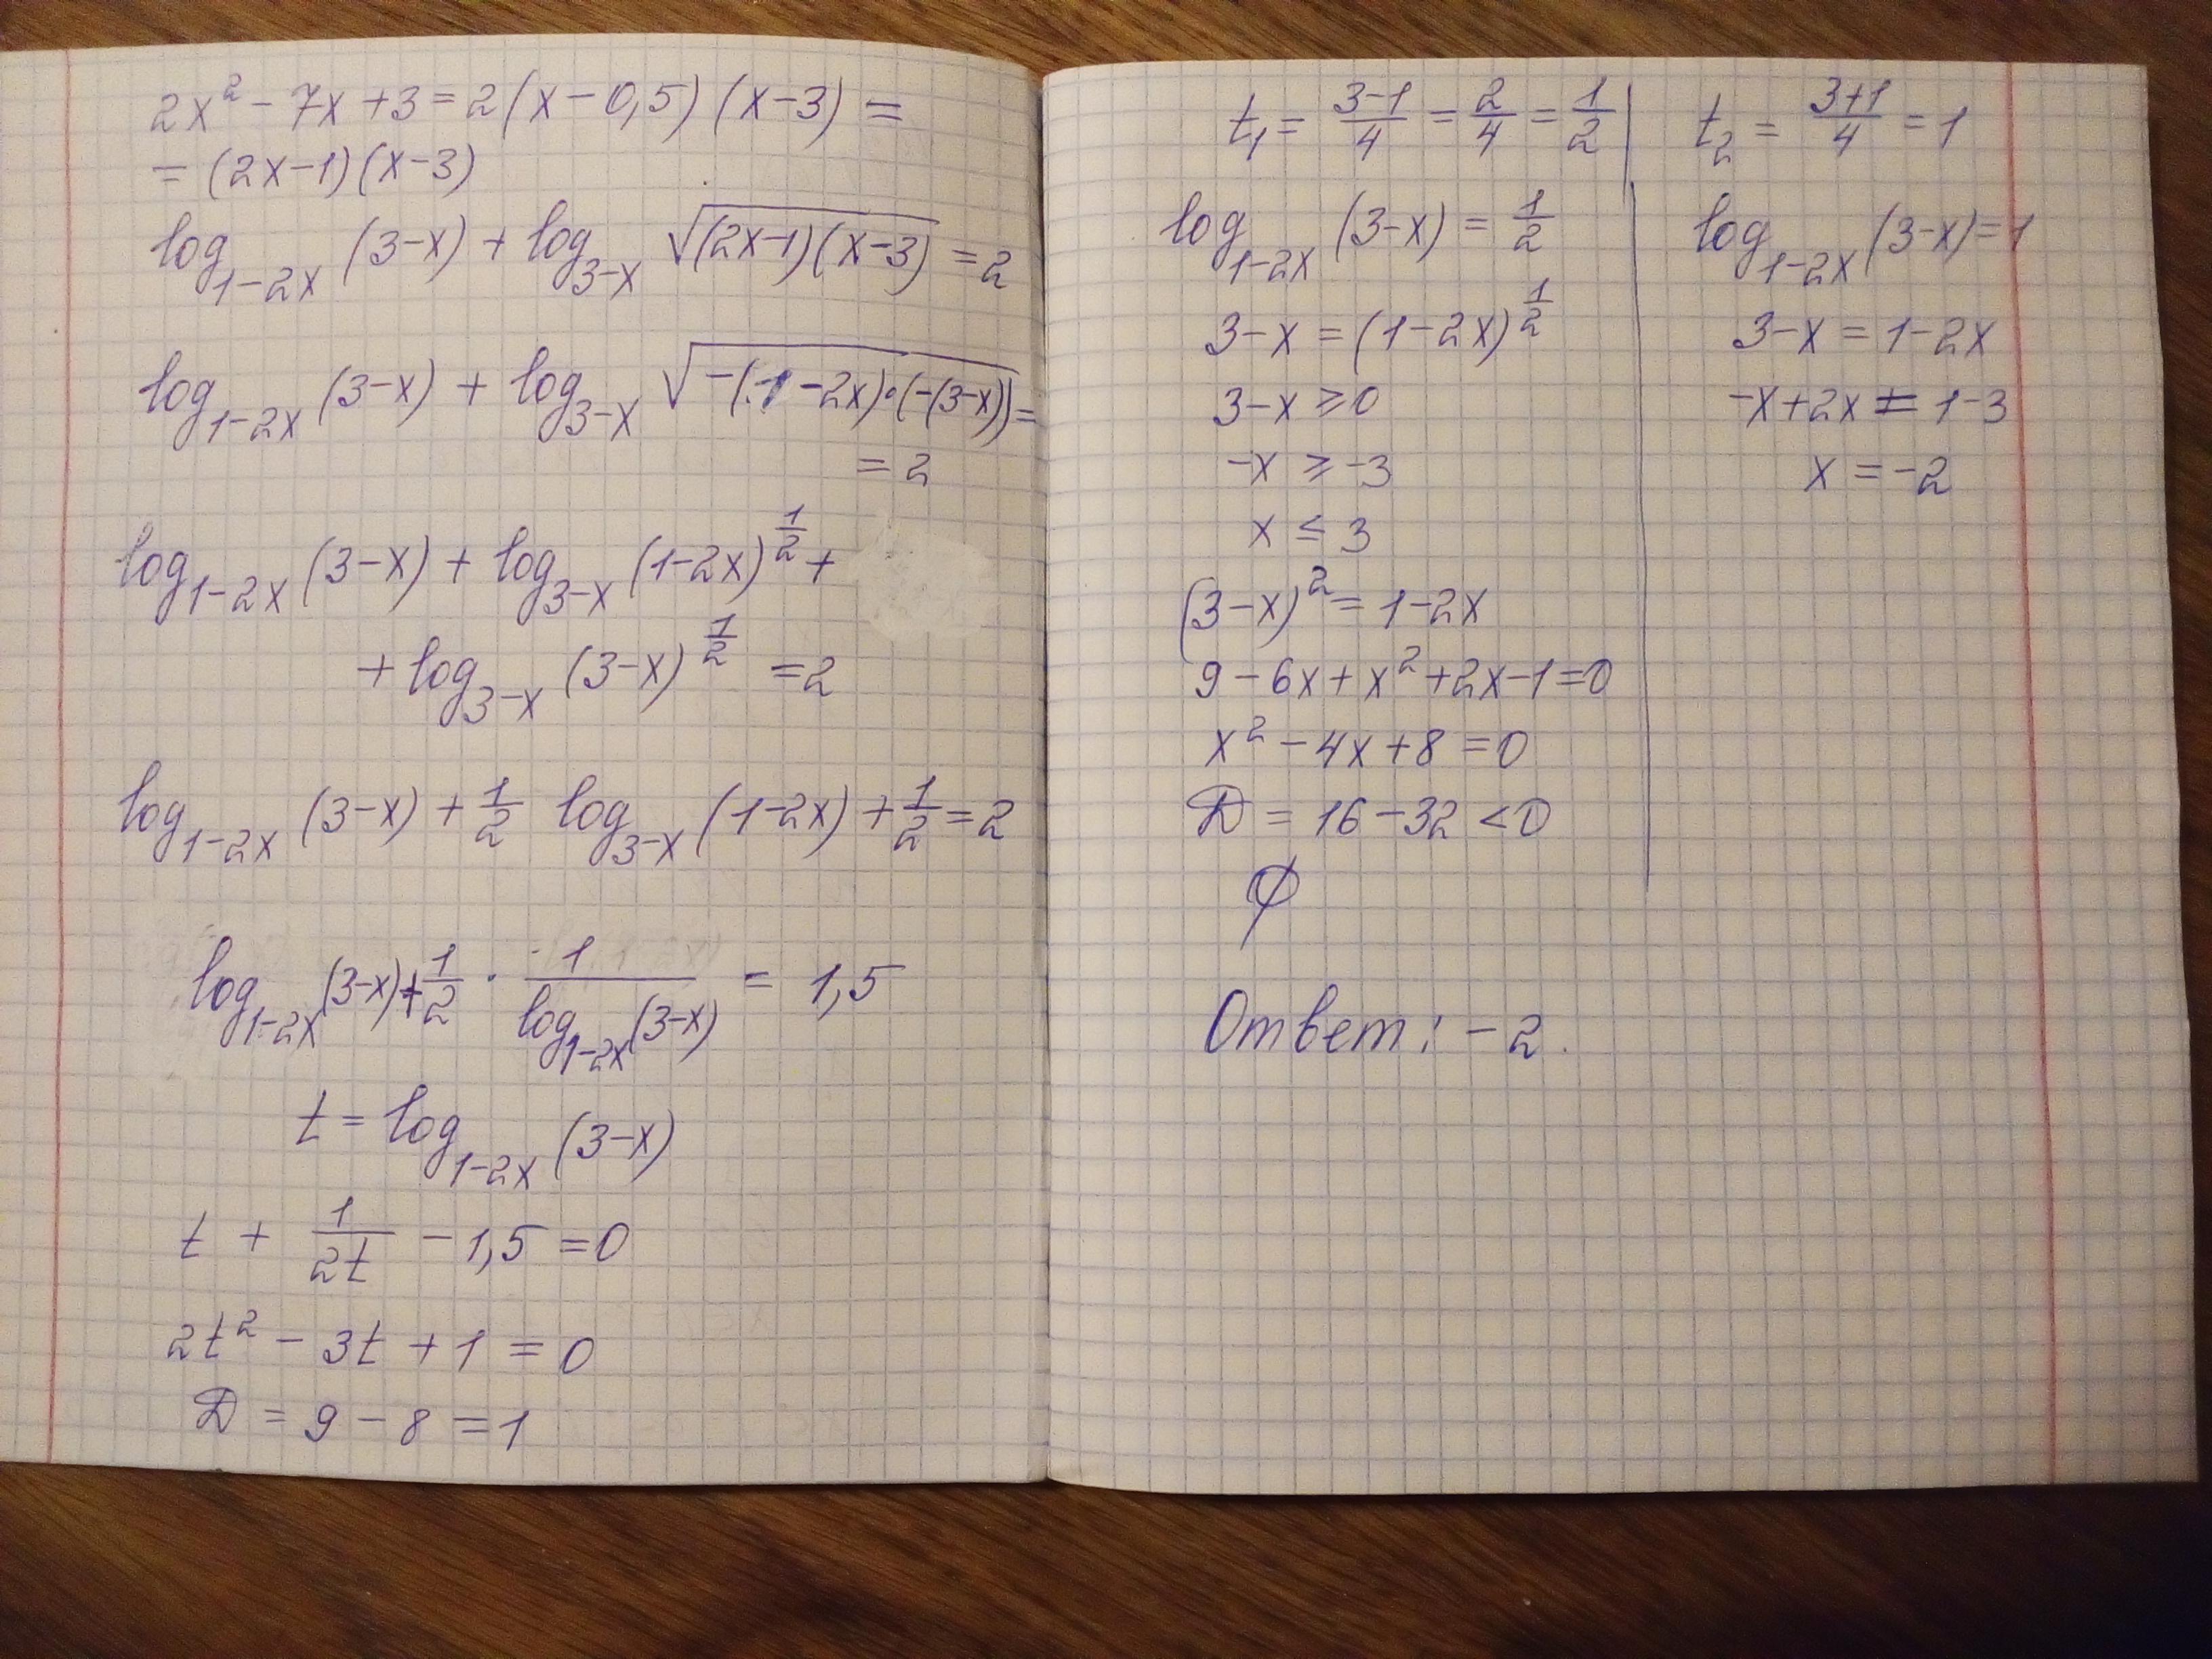 2x² - 7x + 3 = 2(x - 0,5)(x - 3) =
= (2x - 1)(x - 3)
log₁₋₂ₓ (3-x) + log₃₋ₓ √((2x-1)(x-3)) = 2
log₁₋₂ₓ (3-x) + log₃₋ₓ √(-(1-2x)·(-(3-x))) =
= 2
log₁₋₂ₓ (3-x) + log₃₋ₓ (1-2x)^(1/2) +
+ log₃₋ₓ (3-x)^(1/2) = 2
log₁₋₂ₓ (3-x) + 1/2 log₃₋ₓ (1-2x) + 1/2 = 2
log₁₋₂ₓ (3-x) + 1/2 · 1/(log₁₋₂ₓ (3-x)) = 1,5
t = log₁₋₂ₓ (3-x)
t + 1/(2t) - 1,5 = 0
2t² - 3t + 1 = 0
D = 9 - 8 = 1
t₁ = (3-1)/4 = 2/4 = 1/2
log₁₋₂ₓ (3-x) = 1/2
3-x = (1-2x)^(1/2)
3-x ≥ 0
-x ≥ -3
x ≤ 3
(3-x)² = 1-2x
9 - 6x + x² + 2x - 1 = 0
x² - 4x + 8 = 0
D = 16 - 32 < 0
∅
t₂ = (3+1)/4 = 1
log₁₋₂ₓ (3-x) = 1
3-x = 1-2x
-x+2x = 1-3
x = -2
Ответ: -2.